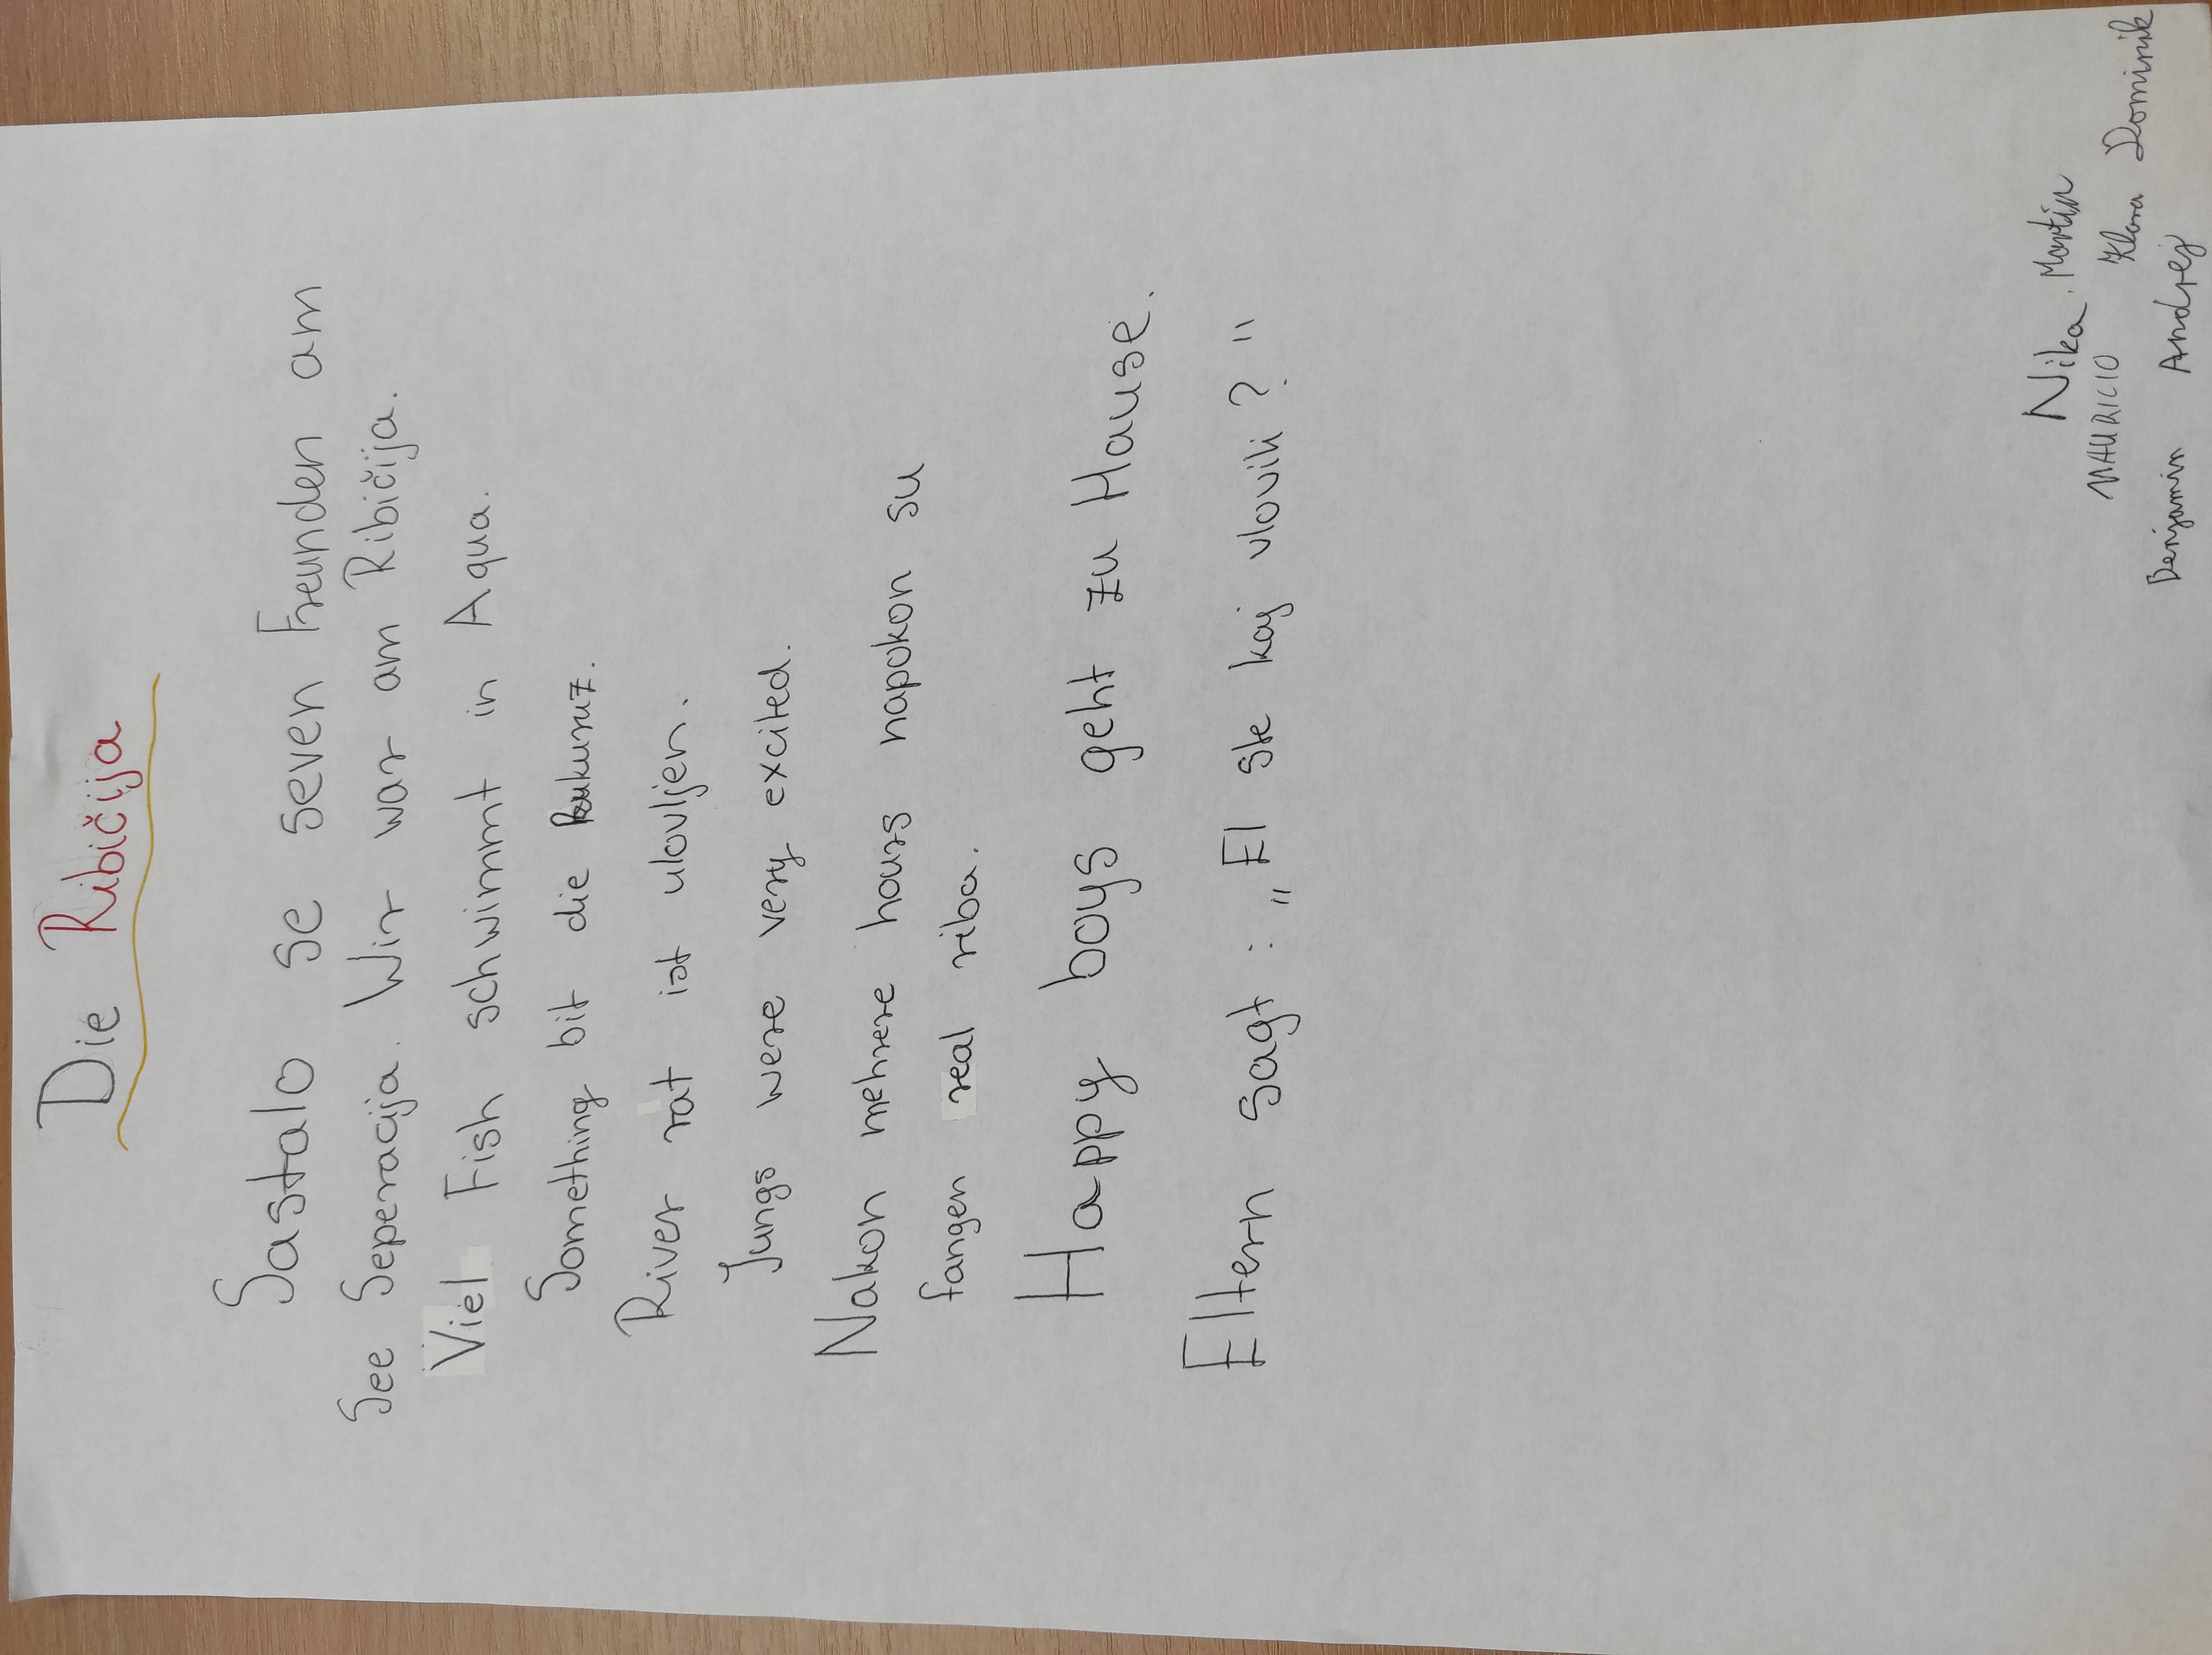 Die Ribičija
Sastalo se seven Freunden am
See Seperacija. Wir war am Ribičija.
Viel Fish schwimmt in Aqua.
Something bit die Kukuruz.
River rat ist ulovljen.
Jungs were very excited.
Nakon mehrere hours napokon su
fangen real riba.
Happy boys geht zu Hause.
Eltern sagt : „El ste kaj vlovili ? "
Nika Martin
MAURICIO Klara Dominik
Benjamin Andrej